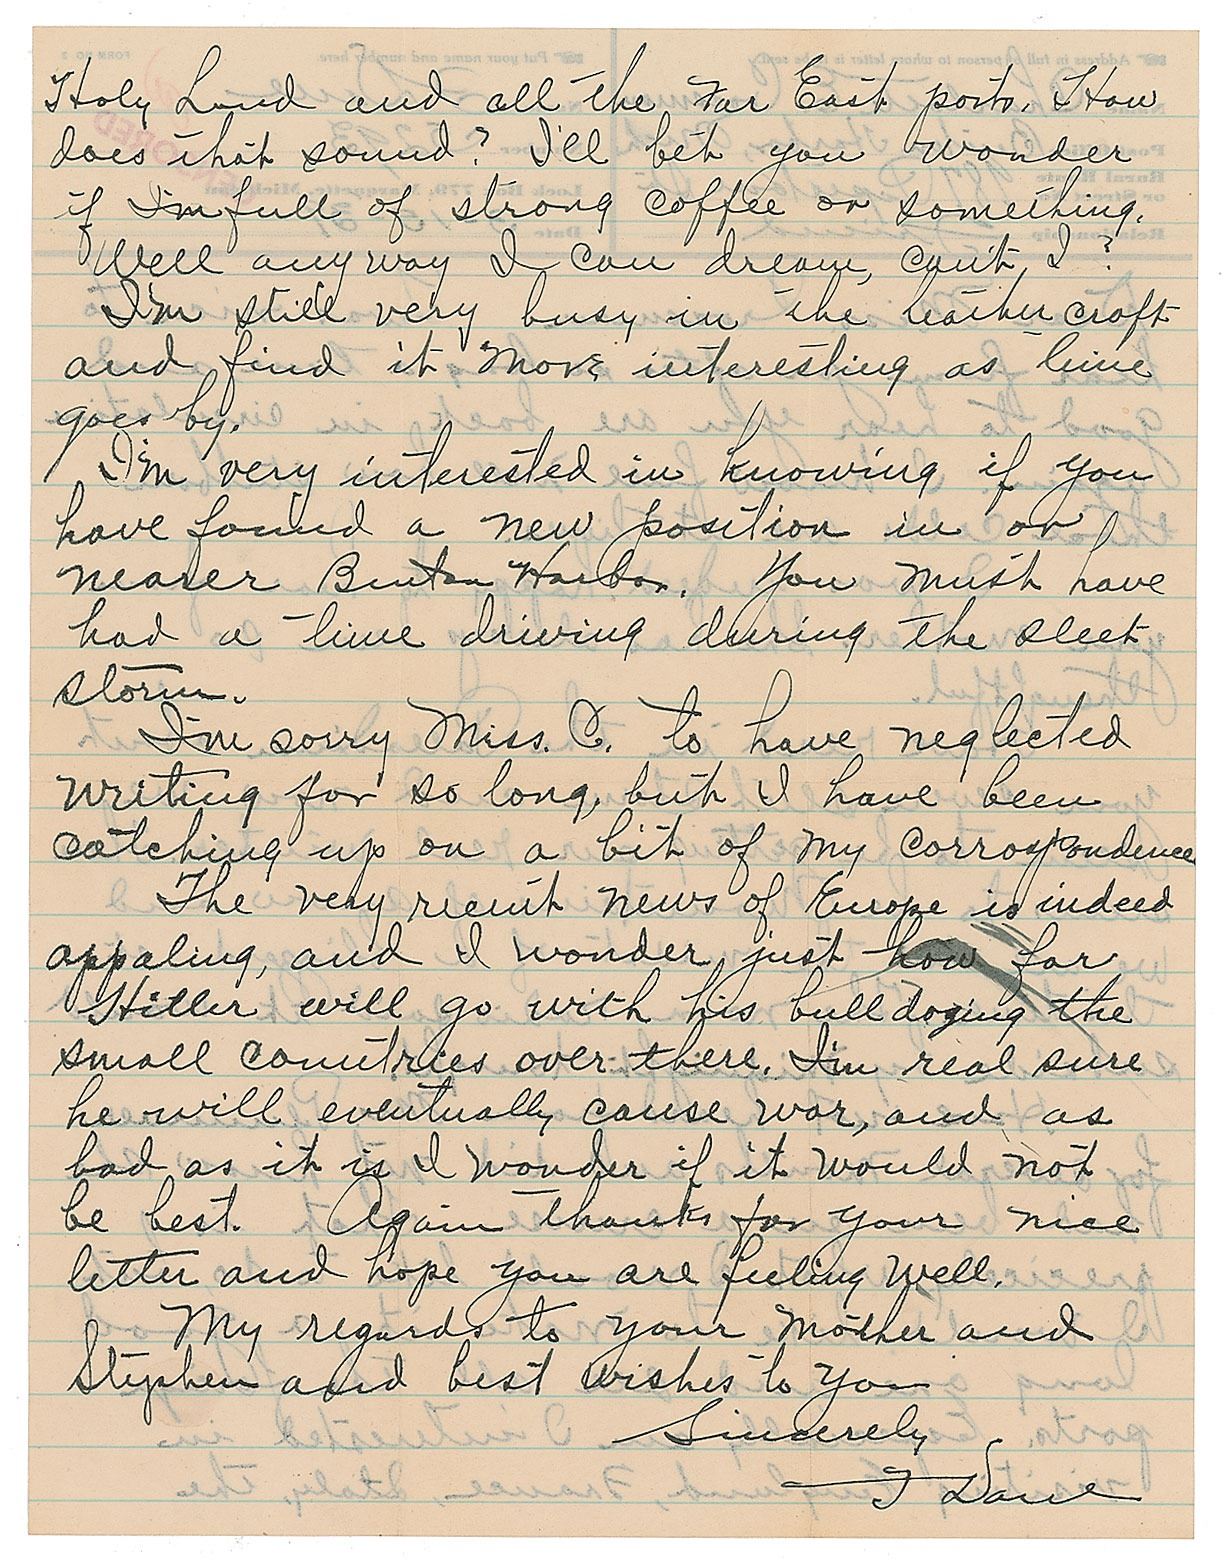 Holy Land and all the Far East ports. How
does that sound? I'll bet you wonder
if I'm full of strong coffee or something.
Well anyway I can dream, can't I?
I'm still very busy in the leather craft
and find it more interesting as time
goes by.
I'm very interested in knowing if you
have found a new position in or
nearer Benton Harbor. You must have
had a time driving during the sleet
storm.
I'm sorry Miss. C. to have neglected
writing for so long, but I have been
catching up on a bit of my corrospondence
The very recent news of Europe is indeed
appaling, and I wonder just how far
Hitler will go with his bulldoging the
small countries over there. I'm real sure
he will eventually cause war, and as
bad as it is I wonder if it would not
be best. Again thanks for your nice
letter and hope you are feeling well.
My regards to your Mother and
Stephen and best wishes to you
Sincerely